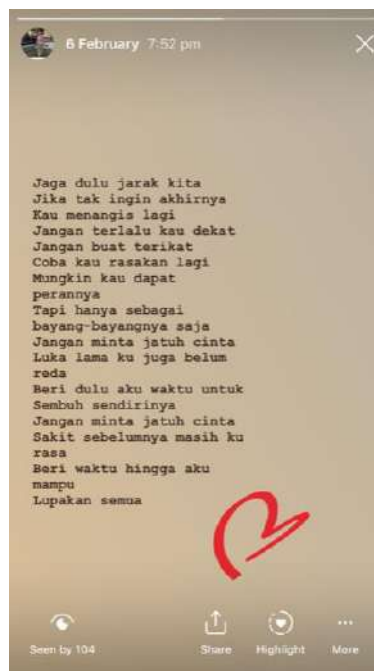 6 February 7:52 pm
Jaga dulu jarak kita
Jika tak ingin akhirnya
Kau menangis lagi
Jangan terlalu kau dekat
Jangan buat terikat
Coba kau rasakan lagi
Mungkin kau dapat
perannya
Tapi hanya sebagai
bayang-bayangnya saja
Jangan minta jatuh cinta
Luka lama ku juga belum
reda
Beri dulu aku waktu untuk
Sembuh sendirinya
Jangan minta jatuh cinta
Sakit sebelumnya masih ku
rasa
Beri waktu hingga aku
mampu
Lupakan semua
Seen by 104
Share
Highlight
More